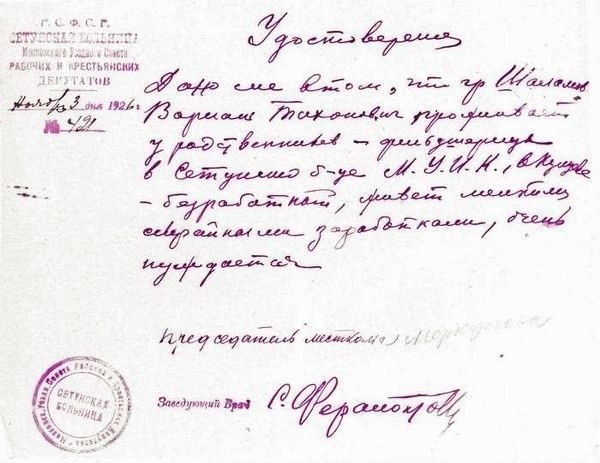 Р. С. Ф. С. Р.
СЕТУНСКАЯ БОЛЬНИЦА
Московского Уездного Совета
РАБОЧИХ И КРЕСТЬЯНСКИХ
ДЕПУТАТОВ
Ноября 3 дня 1926 г.
№ 421
Удостоверение
Дано сие в том, что гр Шаламов
Варлам Тихонович проживает
у родственников – фельдшерица
в Сетунской б-це М.У.И.К., в Кунцеве
– безработный, живет мелкими
случайными заработками, очень
нуждается
Председатель месткома
Заведующий Врач
СЕТУНСКАЯ
БОЛЬНИЦА